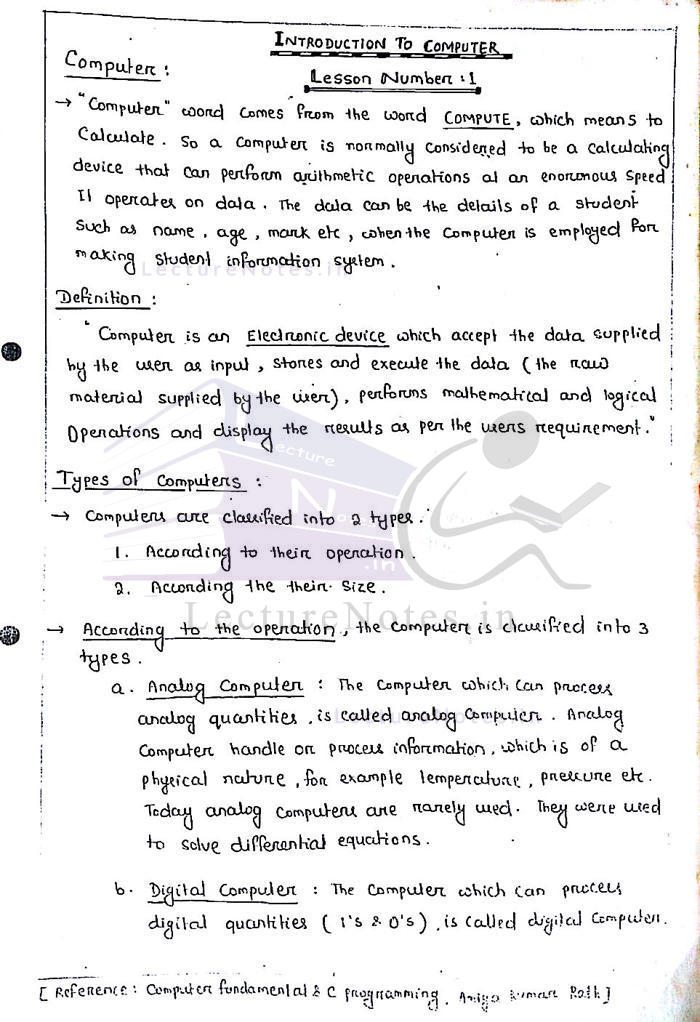 INTRODUCTION TO COMPUTER
Computer :
Lesson Number : 1
→ "Computer" word comes from the word COMPUTE, which means to
Calculate. So a computer is normally considered to be a calculating
device that can perform arithmetic operations at an enormous speed
It operates on data. The data can be the details of a student
Such as name, age, mark etc, when the computer is employed for
making student information system.
LectureNotes.in
Definition :
" Computer is an Electronic device which accept the data supplied
by the user as input, stores and execute the data ( the raw
material supplied by the user), performs mathematical and logical
Operations and display the results as per the users requirement."
Lecture
Types of Computers :
N
→ Computers are classified into 2 types.
1. According to their operation.
.in
2. According the their size.
LectureNotes.in
→ According to the operation, the computer is classified into 3
types.
a. Analog Computer : The computer which can process
analog quantities, is called analog computer. Analog
Computer handle or process information, which is of a
physical nature, for example temperature, pressure etc.
Today analog computers are rarely used. They were used
to solve differential equations.
b. Digital Computer : The computer which can process
digital quantities ( 1's & 0's), is called digital computer.
[ Reference : Computer fundamental & C programming, Kumar Rath ]